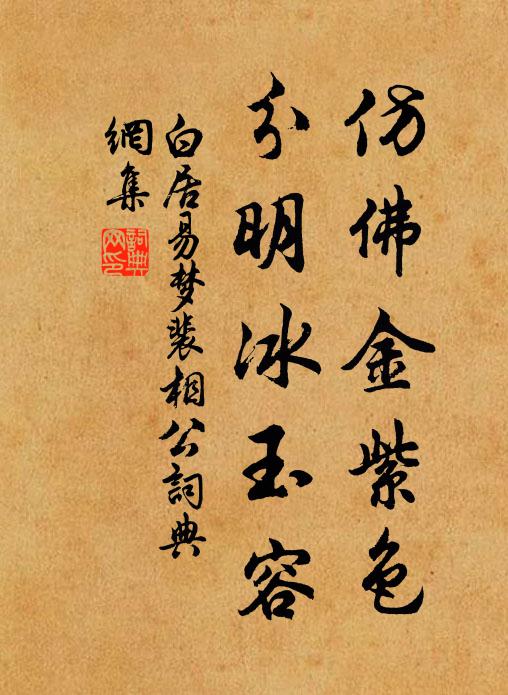 仿佛金紫色
分明冰玉容
白居易梦裴相公詞典
網集
詞典
网印